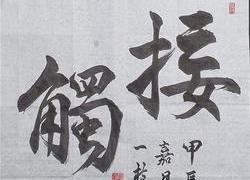 接觸
甲辰
嘉月
一